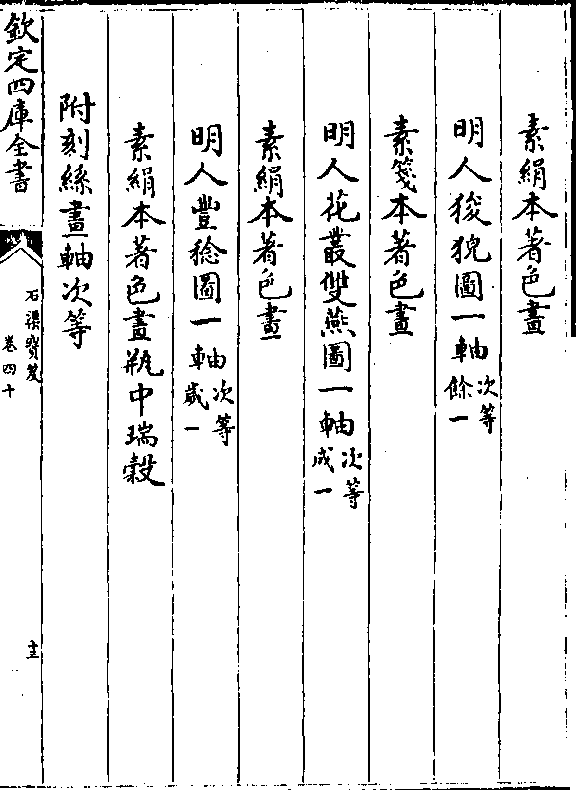 素絹本著色畫
明人狻猊圖一軸次等餘一
素箋本著色畫
明人花叢雙燕圖一軸次等成一
素絹本著色畫
明人豐稔圖一軸次等歲一
素絹本著色畫瓶中瑞穀
附刻絲畫軸次等
欽定四庫全書
石渠寶笈
卷四十
十三